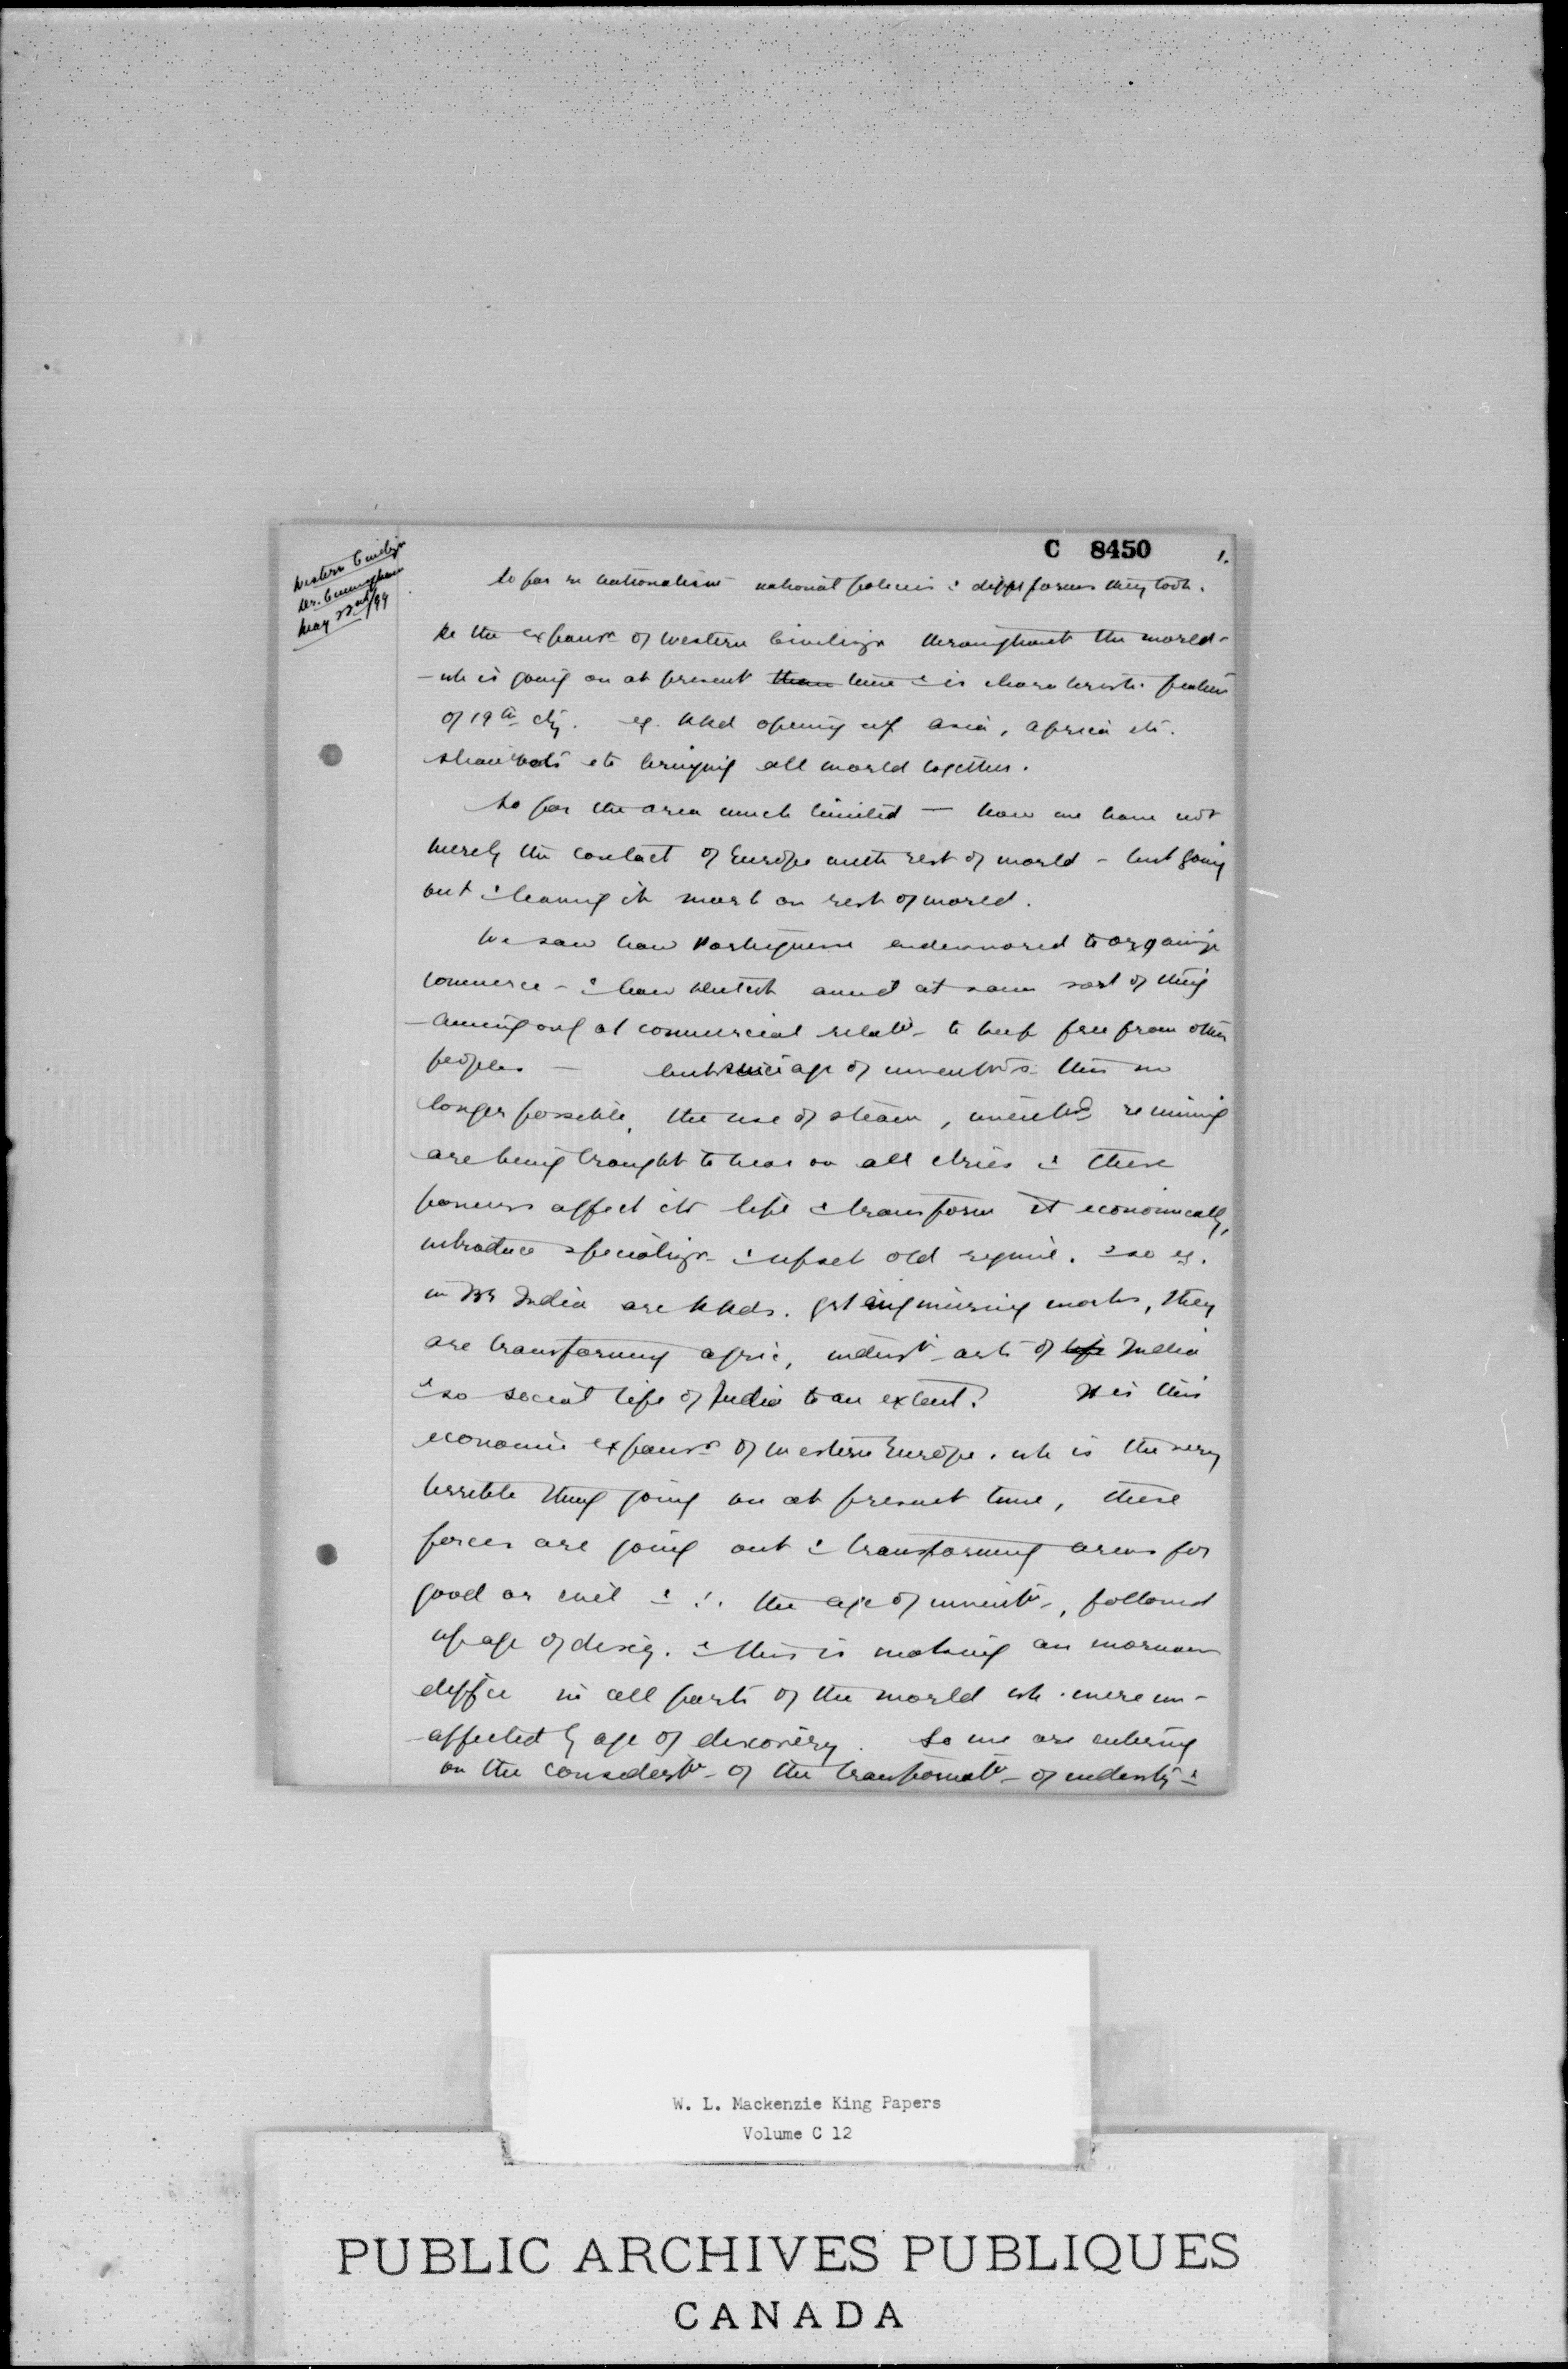 C 8450 1.
Western Civilizn
Dr. Cunningham
May 22nd/99
So far re nationalism national policies & difft forms they took.
Re the expansn of Western Civilizn throughout the world -
- wh is going on at present time & is characteristic feature
of 19th cty. eg. RRd opening up Asia, Africa etc.
steamboats etc bringing all world together.
So far the area much limited — now we have not
merely the contact of Europe with rest of world - but going
out & leaving its mark on rest of world.
We saw how Portuguese endeavored to organize
commerce - & how Dutch aimed at same sort of thing
- aiming only at commercial relatns - to keep free from other
peoples — but since age of inventns this no
longer possible, the use of steam, inventns re mining
are being brought to bear on all ctries & these
powers affect its life & transform it economically,
introduce specializn & upset old regime. & so eg.
in Br India are RRds. gt engineering works, they
are transforming agric, industl arts of life India
& so social life of India to an extent. It is this
economic expansn of Western Europe. wh is the very
terrible thing going on at present time, these
forces are going out & transforming areas for
good or evil & ∴ the age of inventn, followed
up age of discy. & this is making an enormous
diffce in all parts of the world wh. were un-
affected by age of discovery. So we are entering
on the consideratn - of the transformatn - of industry &
W. L. Mackenzie King Papers
Volume C 12
PUBLIC ARCHIVES PUBLIQUES
CANADA